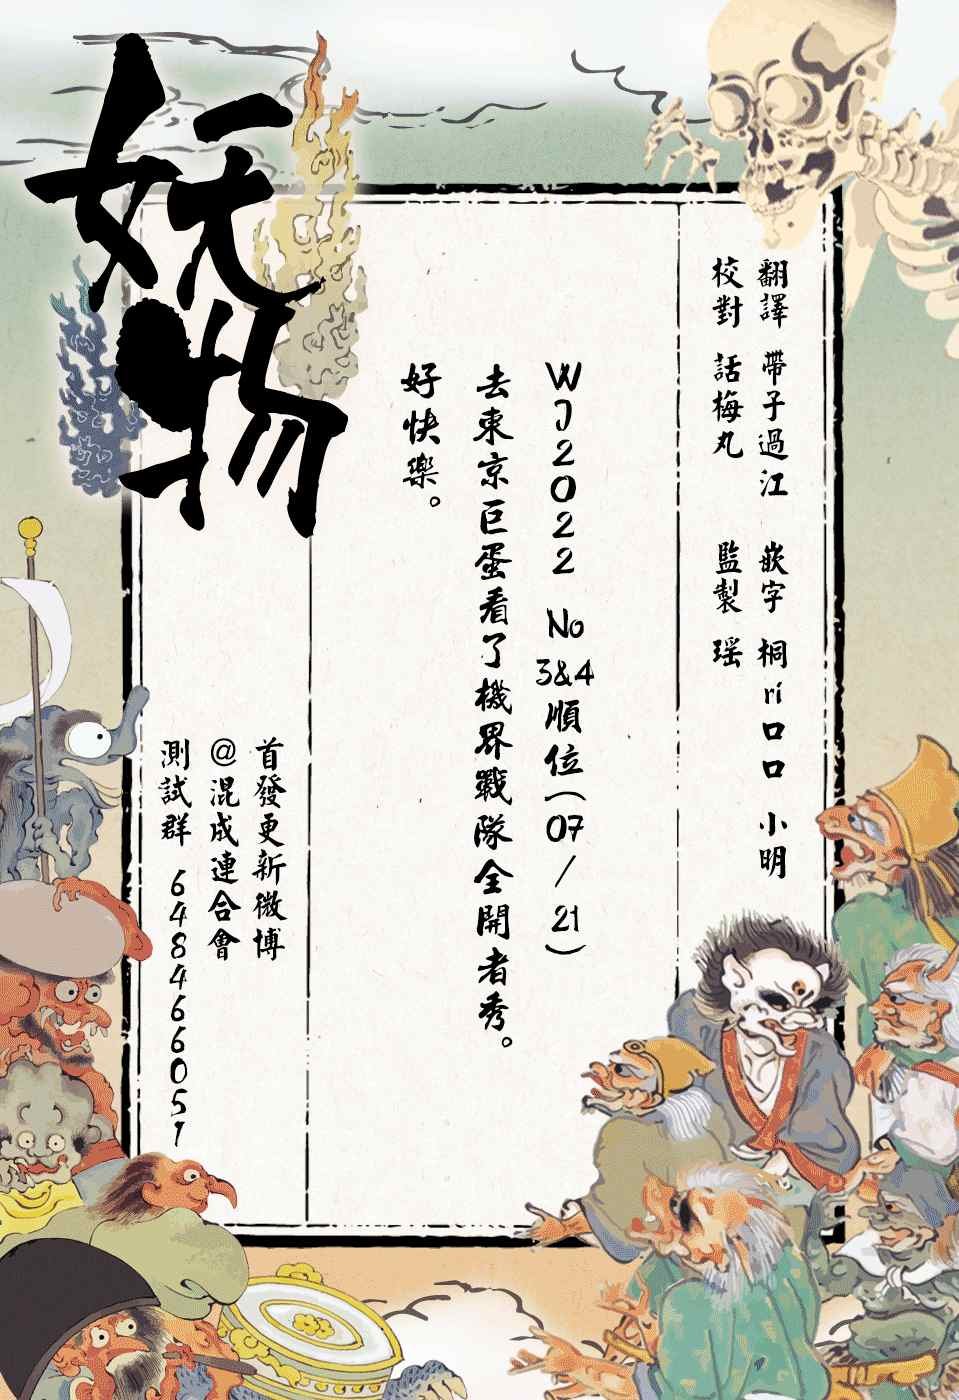 妖物
翻譯 帶子過江 嵌字 桐ri口口 小明
校對 話梅丸 監製 瑶
WJ2022 No3&4順位(07/21)
去東京巨蛋看了機界戰隊全開者秀。
好快樂。
首發更新微博
@混成連合會
測試群 648466051